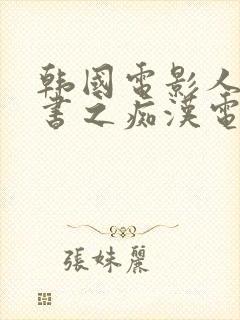 韩國電影人
書之痴漢電
張妹麗